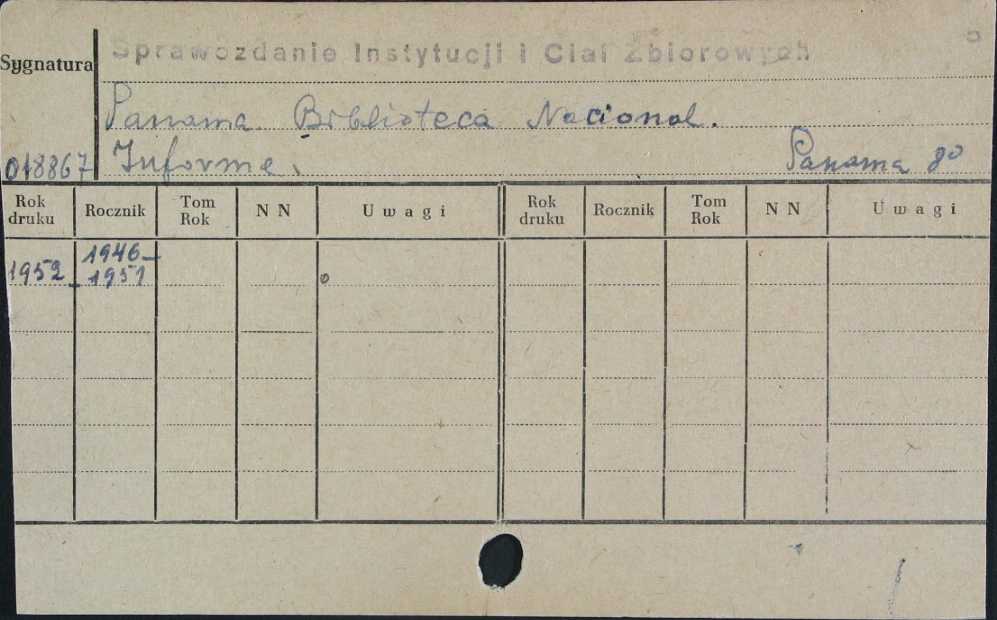 Sprawozdanie Instytucji i Ciał Zbiorowych
Sygnatura
Panama. Biblioteca Nacional.
018867 Informe. Panama 8º
Rok druku Rocznik Tom Rok N N Uwagi Rok druku Rocznik Tom Rok N N Uwagi
1952 1946-1951